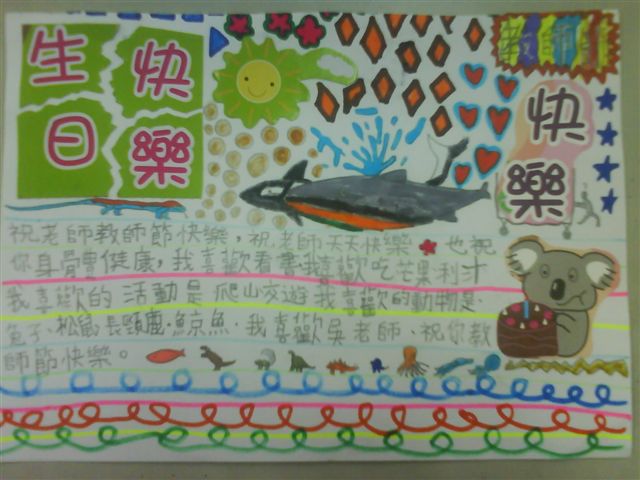 生日
快樂
教師節
快樂
祝老師教師節快樂，祝老師天天快樂 也祝
你身體健康，我喜歡看書我喜歡吃芒果汁
我喜歡的活動是爬山交遊我喜歡的動物是、
兔子、松鼠、長頸鹿、鯨魚、我喜歡吳老師、祝你教
師節快樂。